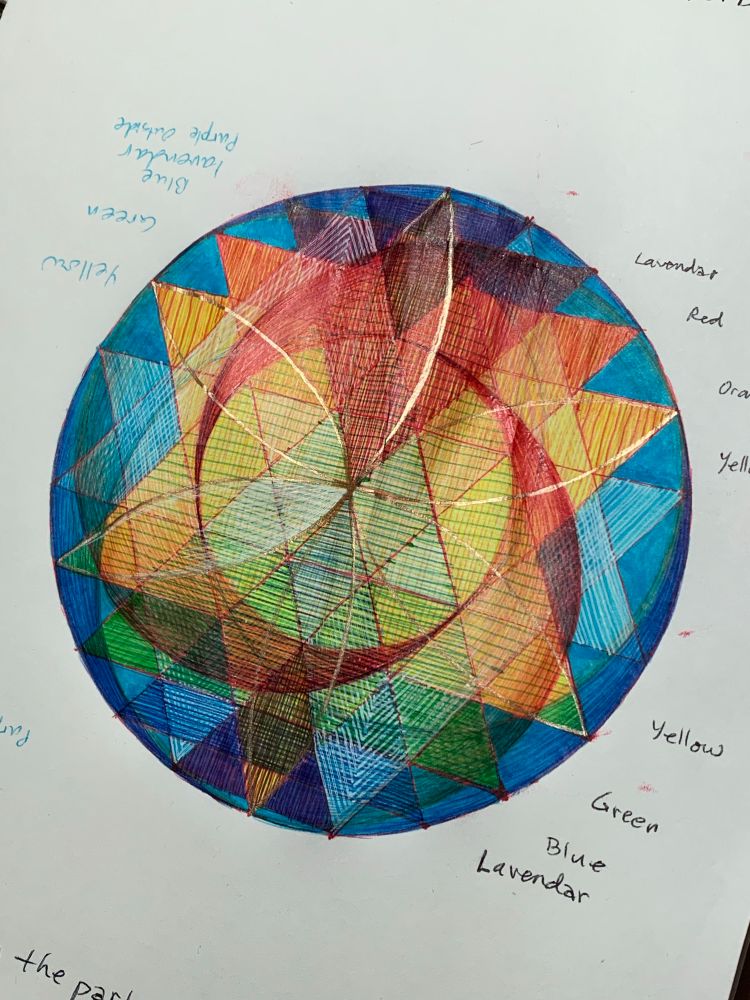 Purple Outside
Lavendar
Blue
Green
Yellow
Lavendar
Red
Ora
Yell
Yellow
Green
Blue
Lavendar
Pur
the part